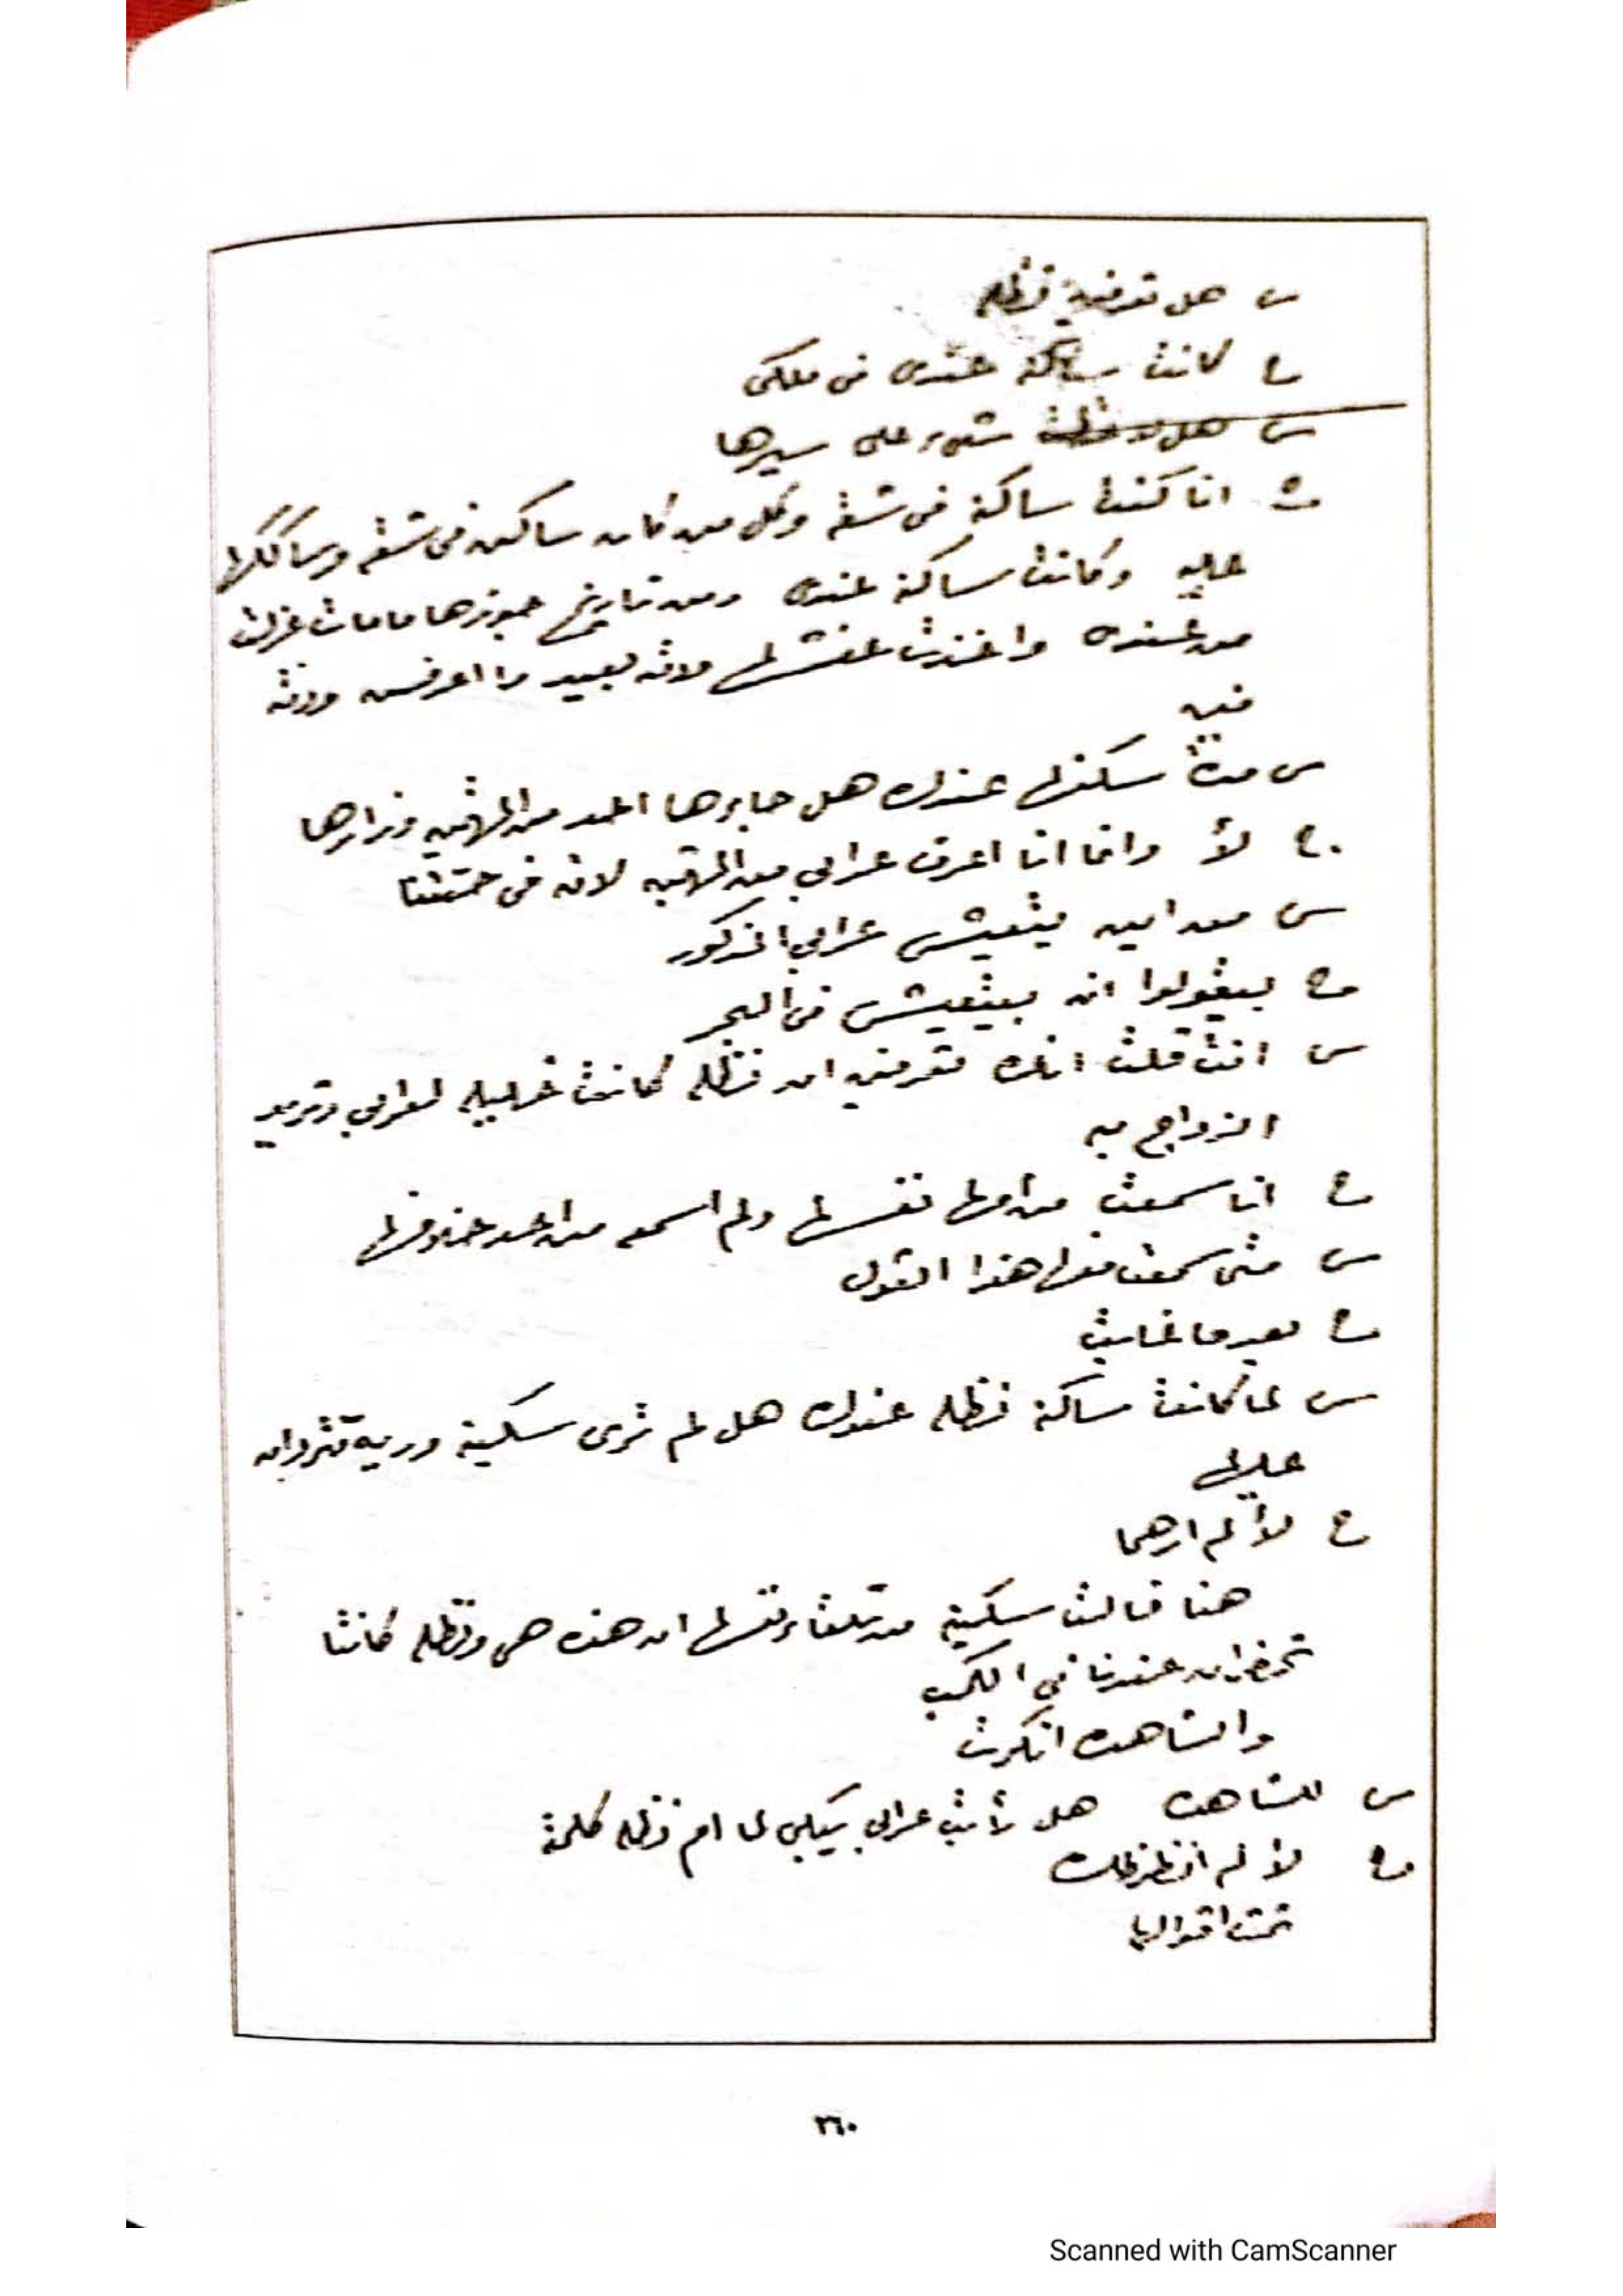 س هل تعرفين نظله
ج كانت ساكنة عندى فى ملكى
س هل لاحظت شىء على سيرها
ج انا كنت ساكنة فى شقه وكل من كان ساكن فى شقه وسالكها
عليه وكانت ساكنة عندى ومن تاريخ جوزها مامات عزلت
من عندى واخذت عفشها ولاده بعيد ما اعرفش ودته
فين
س مدة سكنها عندك هل جاءها احد من المتهمين وزارها
ج لأ وانما انا اعرف عرابي من المتهمين لانه فى حتتنا
س من اين يتعيش عرابي المذكور
ج بيقولوا انه بيتعيش فى البحر
س انت قلت انك تعرفين ان نظله كانت خليله لعرابي وتريد
الزواج به
ج انا سمعت من امها نفسها ولم اسمع من احد خلافها
س متى سمعت منها هذا القول
ج بعد ما غابت
س لما كانت ساكنة نظله عندك هل لم ترى سكينة وريه تترددان
عليها
ج لأ لم ارهما
هنا قالت سكينة من تلقاء نفسها ان هذه هى ونظله كانتا
تحضران عندنا فى الكمب
والشاهده انكرت
س للشاهده هل رأيت عرابي بيكلم ام نظله كلمة
ج لأ لم انظر ذلك
تمت اقوالها
٢٦٠
Scanned with CamScanner